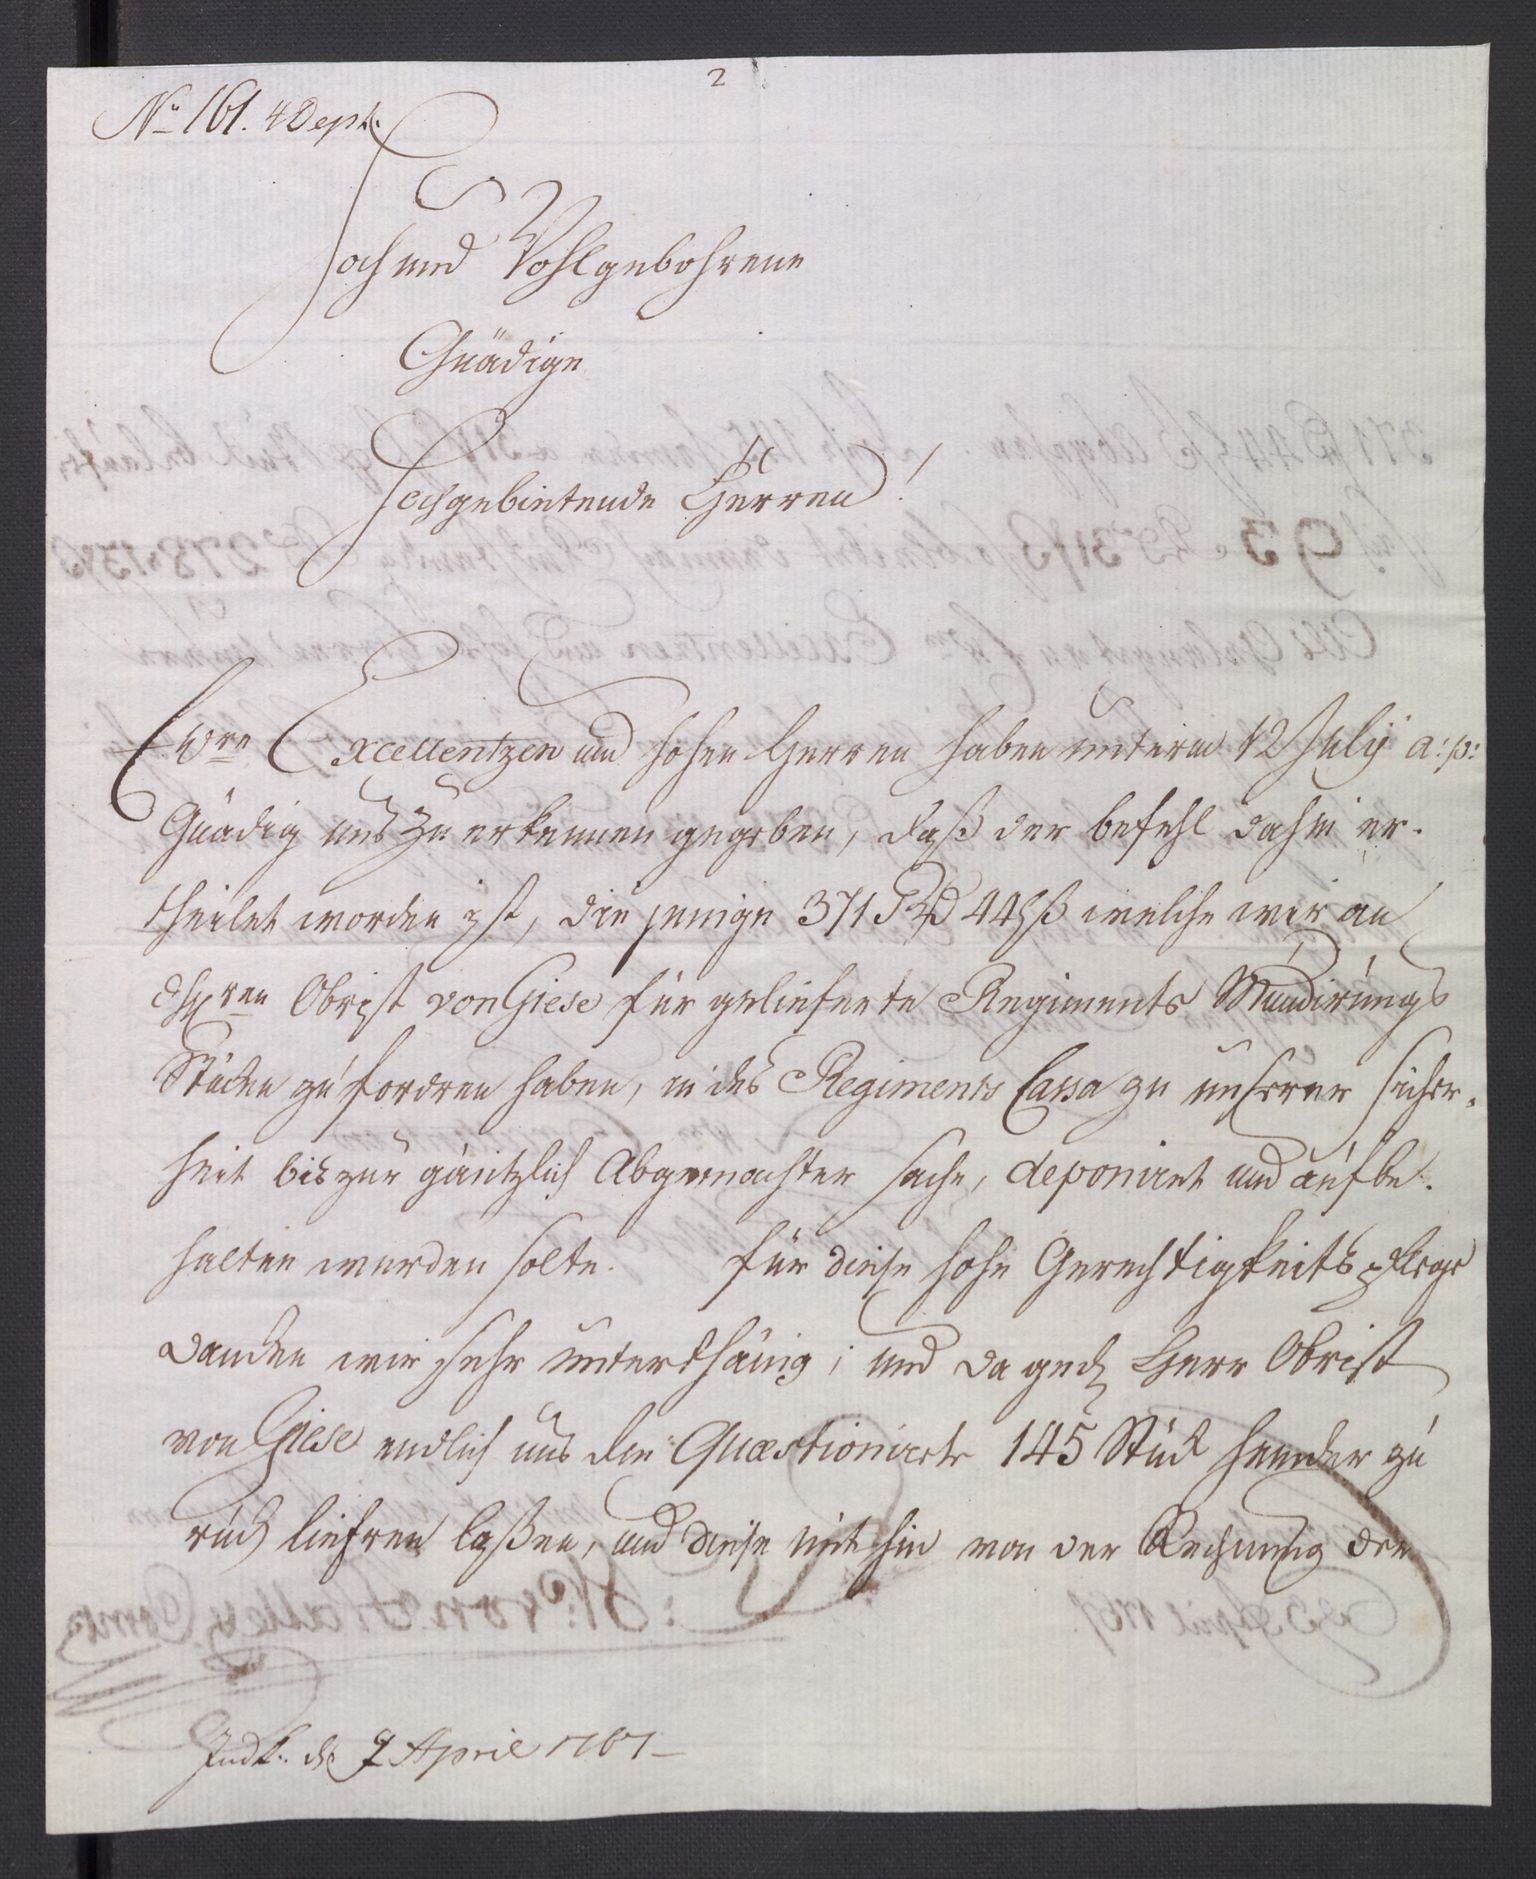 2
No 161. 4 Dept.
Hoch und Wohlgebohrene
Gnädige
Hochgebietende Herren!
Ewren Excellentzen und hohen Herren haben unterm 12 July a: p:
Gnädig uns zu erkennen gegeben, daß der befehl dahin er-
theilet worden ist, die jenige 371 Rd 44 ß welche wir an
dHren Obrist von Giese für gelieferte Regiments Mundirungs
Stücken zu fordren haben, in des Regiments Cassa zu unserer sicher-
heit bis zur gäntzlich Abgemachter sache, deponiret und aufbe-
halten werden solte. für diese hohe Gerechtigkeits pflege
dancken wir sehr unterthänig; und da ged. Herr Obrist
von Giese endlich uns die Quæstionirte 145 Stück hemder zu
rück liefren laßen, und diese mithin von der Rechnung der
Indk. d. 9 April 1767